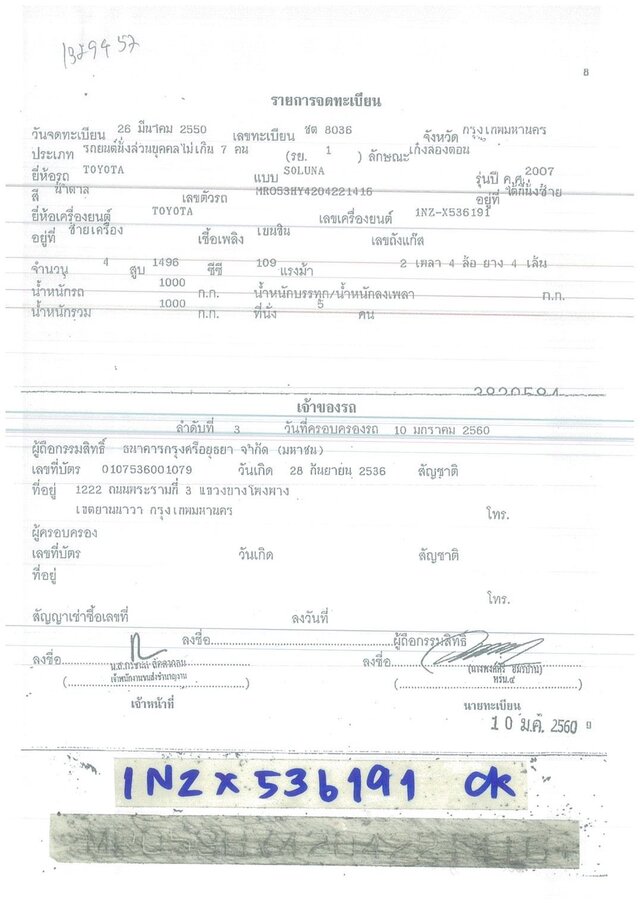 8
รายการจดทะเบียน
วันจดทะเบียน 26 มีนาคม 2550 เลขทะเบียน ชต 8036 จังหวัด กรุงเทพมหานคร
ประเภท รถยนต์นั่งส่วนบุคคลไม่เกิน 7 คน (รย. 1 ) ลักษณะ เก๋งสองตอน
ยี่ห้อรถ TOYOTA แบบ SOLUNA รุ่นปี ค.ศ. 2007
สี น้ำตาล เลขตัวรถ MR053HY4204221416 อยู่ที่ ใต้ที่นั่งซ้าย
ยี่ห้อเครื่องยนต์ TOYOTA เลขเครื่องยนต์ 1NZ-X536191
อยู่ที่ ซ้ายเครื่อง เชื้อเพลิง เบนซิน เลขถังแก๊ส
จำนวน 4 สูบ 1496 ซีซี 109 แรงม้า 2 เพลา 4 ล้อ ยาง 4 เส้น
น้ำหนักรถ 1000 ก.ก. น้ำหนักบรรทุก/น้ำหนักลงเพลา ก.ก.
น้ำหนักรวม 1000 ก.ก. ที่นั่ง 5 คน
เจ้าของรถ
ลำดับที่ 3 วันที่ครอบครองรถ 10 มกราคม 2560
ผู้ถือกรรมสิทธิ์ ธนาคารกรุงศรีอยุธยา จำกัด (มหาชน)
เลขที่บัตร 0107536001079 วันเกิด 28 กันยายน 2536 สัญชาติ
ที่อยู่ 1222 ถนนพระรามที่ 3 แขวงบางโพงพาง
เขตยานนาวา กรุงเทพมหานคร โทร.
ผู้ครอบครอง
เลขที่บัตร วันเกิด สัญชาติ
ที่อยู่
โทร.
สัญญาเช่าซื้อเลขที่ ลงวันที่
ลงชื่อ ผู้ถือกรรมสิทธิ์
ลงชื่อ ลงชื่อ
เจ้าพนักงานขนส่งชำนาญงาน
เจ้าหน้าที่ นายทะเบียน
10 ม.ค. 2560
1NZ x 536191 ok